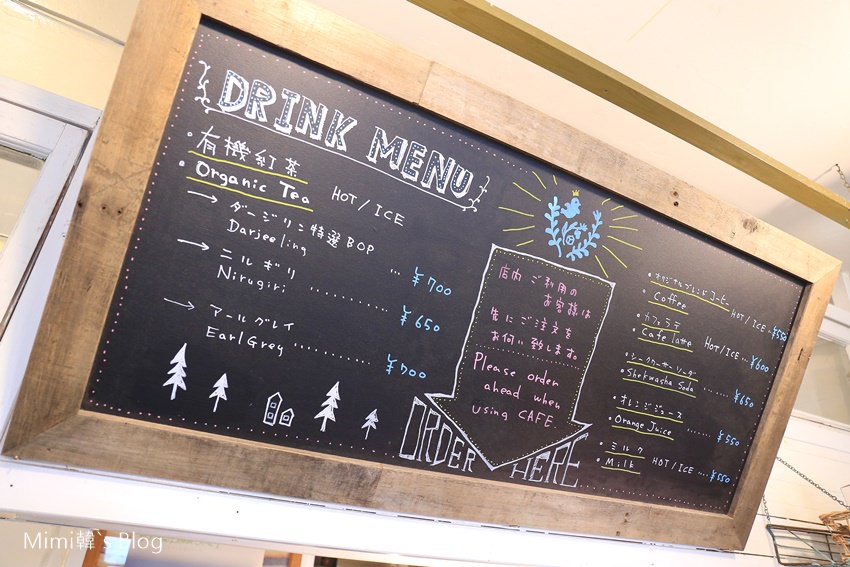 DRINK MENU
・有機紅茶
・Organic Tea HOT / ICE
→ ダージリン特選BOP
Darjeeling ... ¥700
→ ニルギリ
Nirugiri ......... ¥650
→ アールグレイ
Earl Grey ......... ¥700
店内ご利用の
お客様は
先にご注文を
お伺い致します。
Please order
ahead when
using CAFE
ORDER HERE
・オリジナルブレンドコーヒー
・Coffee HOT / ICE ... ¥550
・カフェラテ
・Cafe latte HOT / ICE ... ¥600
・シークワーサーソーダ
・Shekwasha Soda ...... ¥650
・オレンジジュース
・Orange Juice ...... ¥550
・ミルク
・Milk HOT / ICE ... ¥550
Mimi韓`s Blog